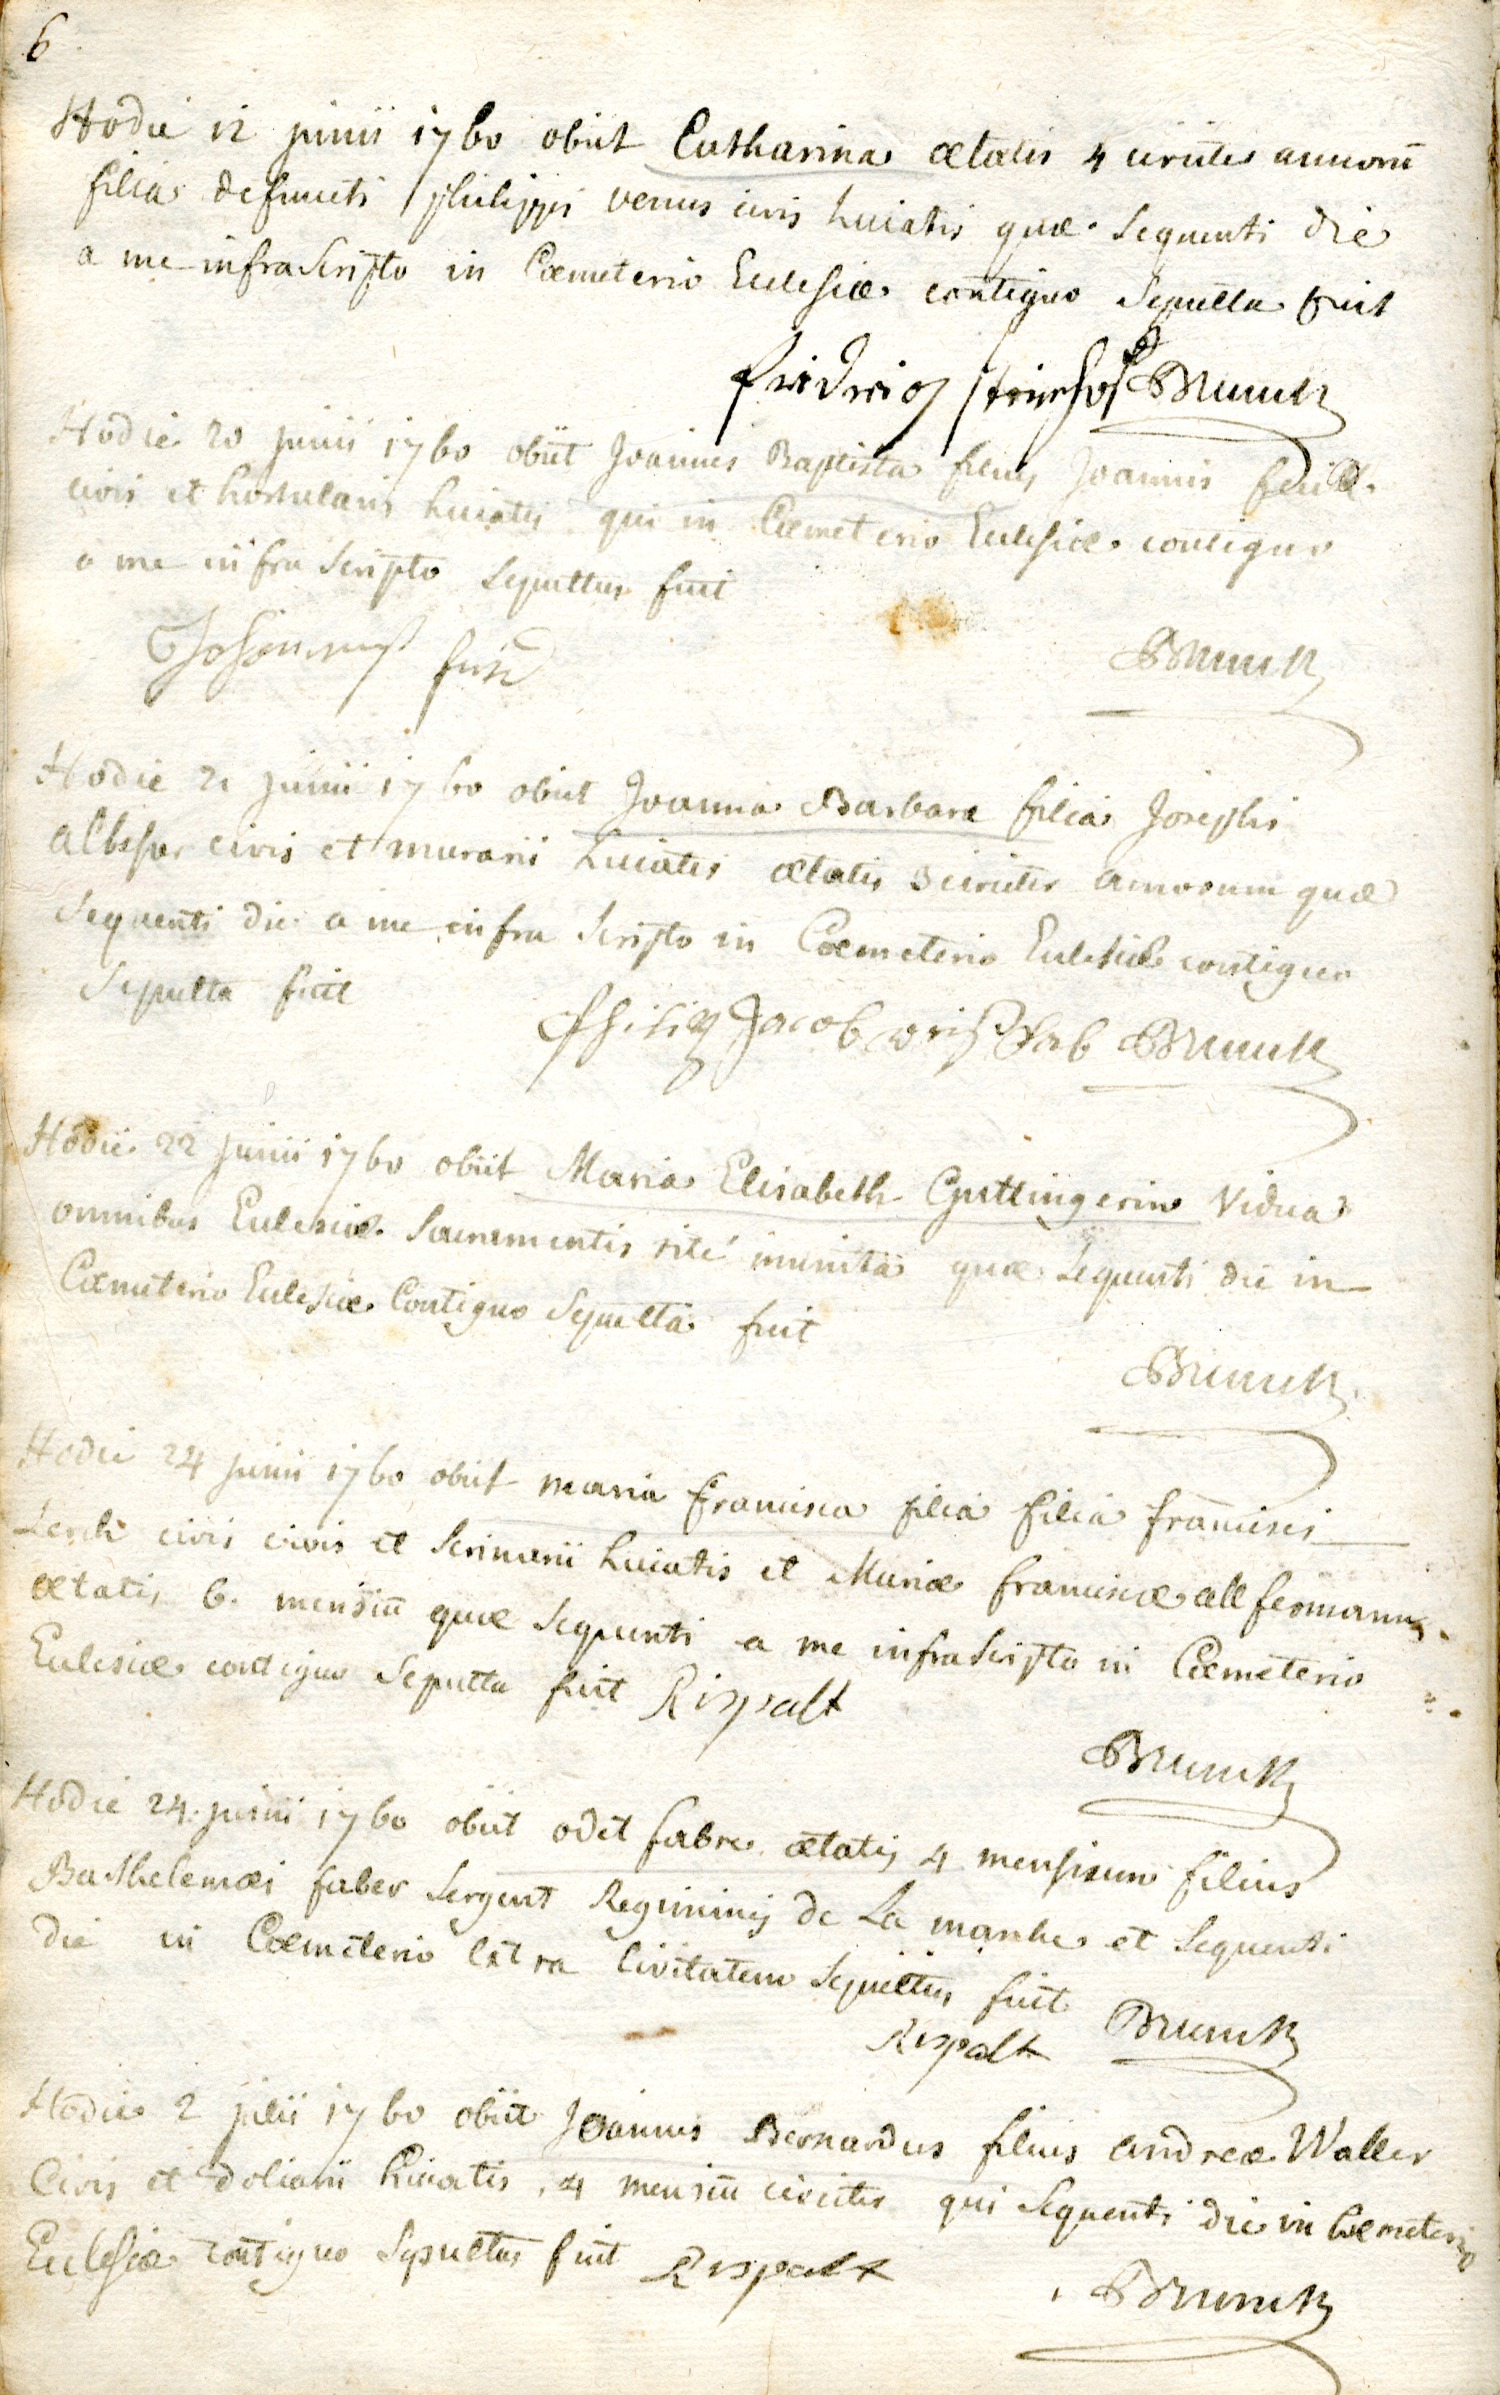 6
Hodie 12 junii 1760 obiit Catharina ætatis 4 circiter annorū
filia defuncti philippi venus civis huiatis quæ sequenti die
a me infrascripto in Cœmeterio Ecclesiæ contiguo sepulta fuit
fridrich Brunck
Hodie 20 junii 1760 obiit Joannes Baptista filius Joannis
civis et hortulani huiatis qui in Cœmeterio Ecclesiæ contiguo
a me infra scripto sepultus fuit
Johannes Brunck
Hodie 21 junii 1760 obiit Joanna Barbara filia Josephi
civis et murarii huiatis ætatis 3 circiter annorum quæ
sequenti die a me infra scripto in Cœmeterio Ecclesiæ contiguo
sepulta fuit Philip Jacob Brunck
Hodie 22 junii 1760 obiit Maria Elisabeth Guttingerin Vidua
omnibus Ecclesiæ Sacramentis rité munita quæ sequenti die in
Cœmeterio Ecclesiæ Contiguo Sepulta fuit
Brunck
Hodie 24 junii 1760 obiit maria francisca filia filia francisci
Lerch civis civis et scrinarii huiatis et Mariæ franciscæ
ætatis 6. mensiū quæ sequenti a me infrascripto in Cœmeterio
Ecclesiæ contiguo sepulta fuit Rispalt
Brunck
Hodie 24 junii 1760 obiit odet fabre ætatis 4 mensium filius
Bathelemæi faber sergent Regiminis de La marche et sequenti
die in Cœmeterio extra Civitatem sepultus fuit
Rispalt Brunck
Hodie 2 julii 1760 obiit Joannes Bernardus filius andreæ Waller
Civis et doliarii huiatis, 4 mensiū circiter qui sequenti die in Cœmeterio
Ecclesiæ contiguo sepultus fuit Rispalt
Brunck